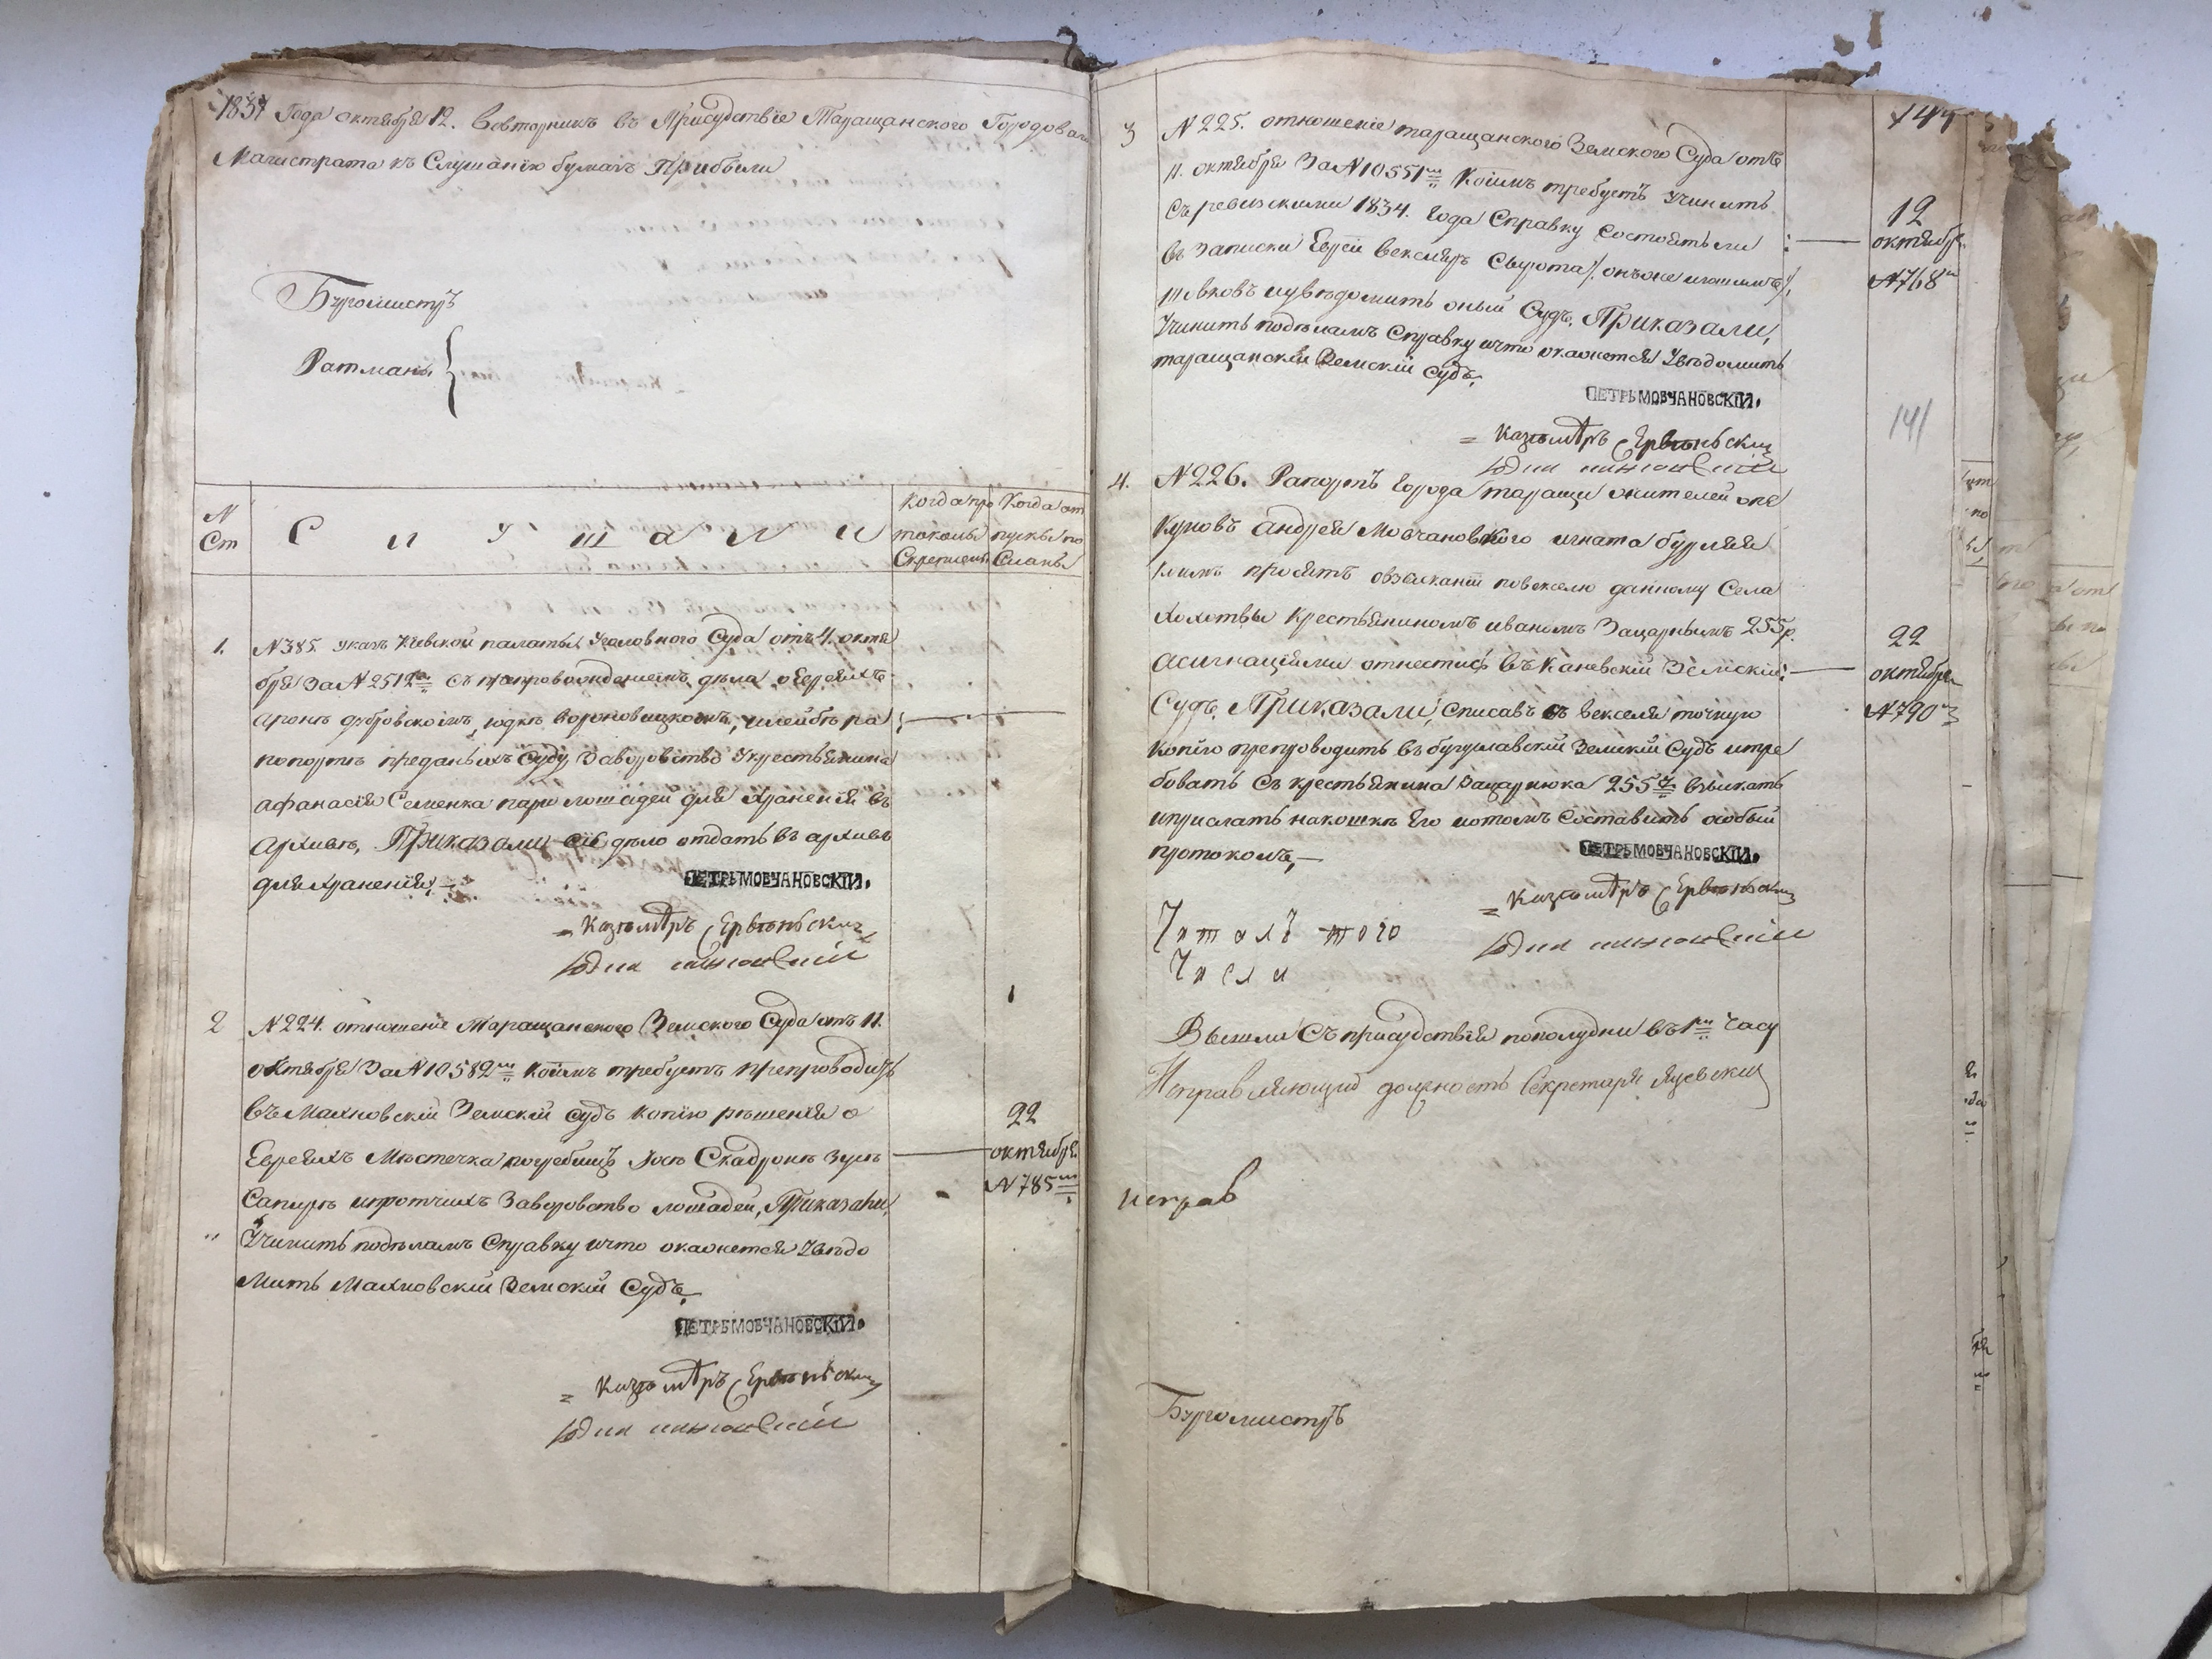 1837 Года октября 12. вовторникъ въ Присудствіе Таращанского Городоваго
Магистрата къ Слушанію бумагъ Прибыли
Бургомистръ
Ратманы
N Ст
Слушали
Когда про токолы Скреплены
Когда от пуски по Сланы
1. N 385. указъ Кіевской палаты Уголовного Суда отъ 4. октя
бря за N 2512мъ съ препровожденіемъ дѣла о Евреяхъ
Аронѣ дубровскомъ, юдкѣ вороновицкомъ, и лейбѣ ра
попортѣ преданыхъ суду за воровство у крестьянина
афанасія Семенка пары лошадей для храненія въ
Архивѣ, Приказали сіе дѣло отдать въ архивъ
для храненія,—
ПЕТРЬ МОВЧАНОВСКІЙ.
= Казѣмѣръ
2 N 224. отношеніе Таращанского Земского Суда отъ 11.
октября за N 10582мъ коимъ требуетъ препроводить
въ Махновскій Земскій судъ копію рѣшенія о
Евреяхъ Мѣстечка погребищъ Іосѣ Скадронѣ
Сапирѣ и протчихъ за воровство лошадей, Приказали,
Учинить по дѣламъ Справку и что окажется Увѣдо
мить Махновскій Земскій Судъ,
22
октября
N 785мъ
ПЕТРЬ МОВЧАНОВСКІЙ.
= Казѣмѣръ
144
3 N 225. отношеніе таращанского Земского Суда отъ
11. октября за N 10551мъ коимъ требуетъ учинить
съ ревизскими 1834. года Справку состоятъ ли
въ записки Еврей
и увѣдомить оный Судъ, Приказали,
Учинить по дѣламъ Справку и что окажется Увѣдомить
таращанскій Земскій судъ,
12
октября
N 768
ПЕТРЬ МОВЧАНОВСКІЙ.
141
= Казѣмѣръ
4. N 226. Рапортъ города таращи жителей опе
куновъ андрея Мовчановского игната бурляя
коимъ просятъ о взысканіи по векселю данному Села
Хохотвы Крестьяниномъ иваномъ Зацарнымъ 255 р.
асигнаціями отнестись въ Каневскій Земскій
Судъ, Приказали, списавъ съ векселя точную
копію препроводить въ бугуславскій Земскій Судъ и тре
бовать съ крестьянина Зацарнюка 255 р. взыскать
и прислать на коштъ Его и о томъ составить особый
протоколъ,—
22
октября
N 790
ПЕТРЬ МОВЧАНОВСКІЙ.
= Казѣмѣръ
Читалъ того
Числа
Вышли съ присудствія пополудни въ 1мъ часу
Исправляющій должность Секретаря
исправ
Бургомистръ